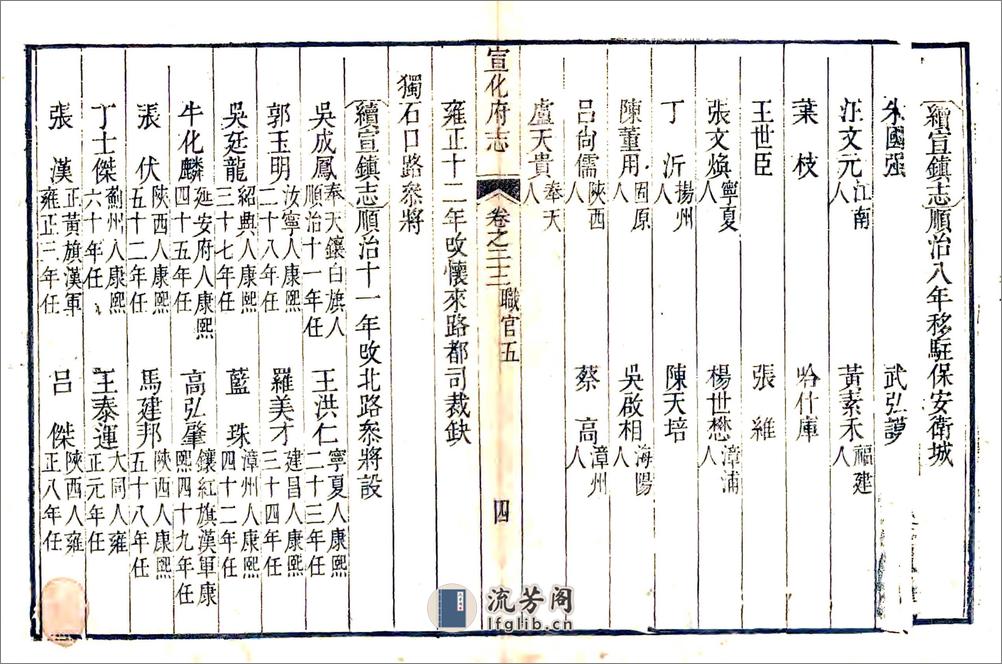 續宣鎮志順治八年移駐保安衛城
朱國强 武弘謨
汪文元江南人 黃素禾福建人
葉枝 哈什庫
王世臣 張維
張文煥寧夏人 楊世懋漳浦人
丁沂揚州人 陳天培
陳董用固原人 吳啟相海陽人
呂尚儒陝西人 蔡高漳州人
盧天貴奉天人
雍正十二年改懷來路都司裁缺
宣化府志 卷之二三 職官五 四
獨石口路叅將
續宣鎮志順治十一年改北路叅將設
吳成鳳奉天鑲白旗人順治十一年任 王洪仁寧夏人康熙二十三年任
郭玉明汝寧人康熙二十八年任 羅美才建昌人康熙三十四年任
吳延龍紹興人康熙三十七年任 藍珠漳州人康熙四十二年任
牛化麟延安府人康熙四十五年任 高弘肇鑲紅旗漢軍康熙四十九年任
張伏陝西人康熙五十二年任 馬建邦陝西人康熙五十八年任
丁士傑薊州人康熙六十年任 王泰運大同人雍正元年任
張漢正黃旗漢軍雍正三年任 呂傑陝西人雍正八年任
流芳阁
lfglib.cn